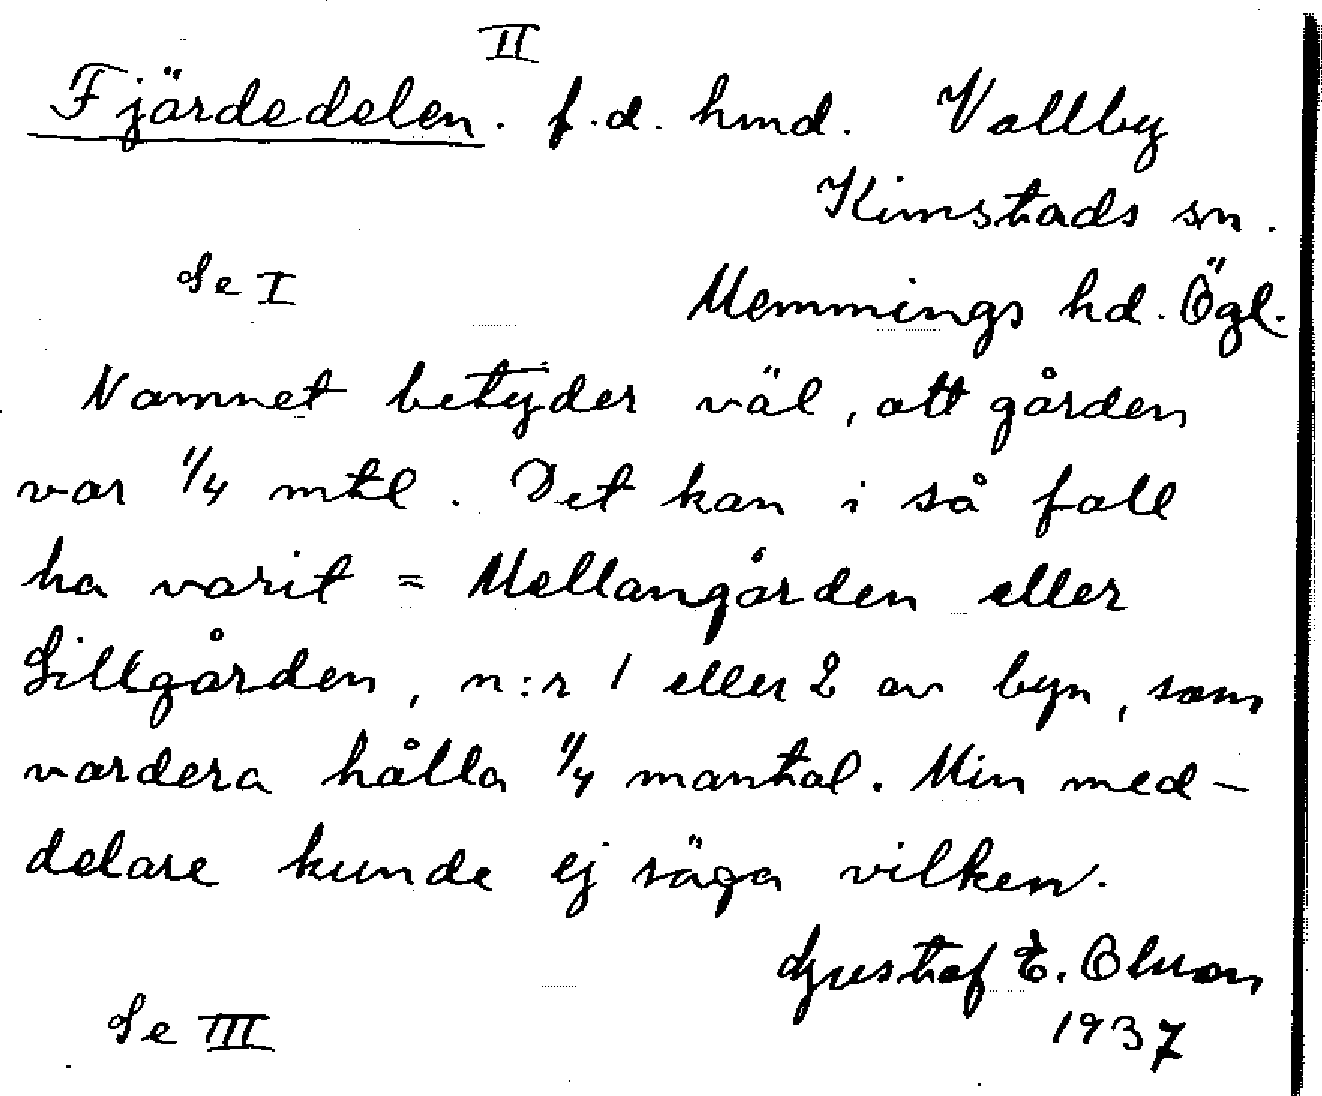 II
Fjärdedelen. f.d. hmd. Vallby
Kimstads sn.
Se I
Memmings hd. Ögl.
Namnet betyder väl, att gården
var 1/4 mtl. Det kan i så fall
ha varit = Mellangården eller
Lillgården, n:r 1 eller 2 av byn, som
vardera hålla 1/4 mantal. Min med-
delare kunde ej säga vilken.
Gustaf E. Olsson
Se III
1937